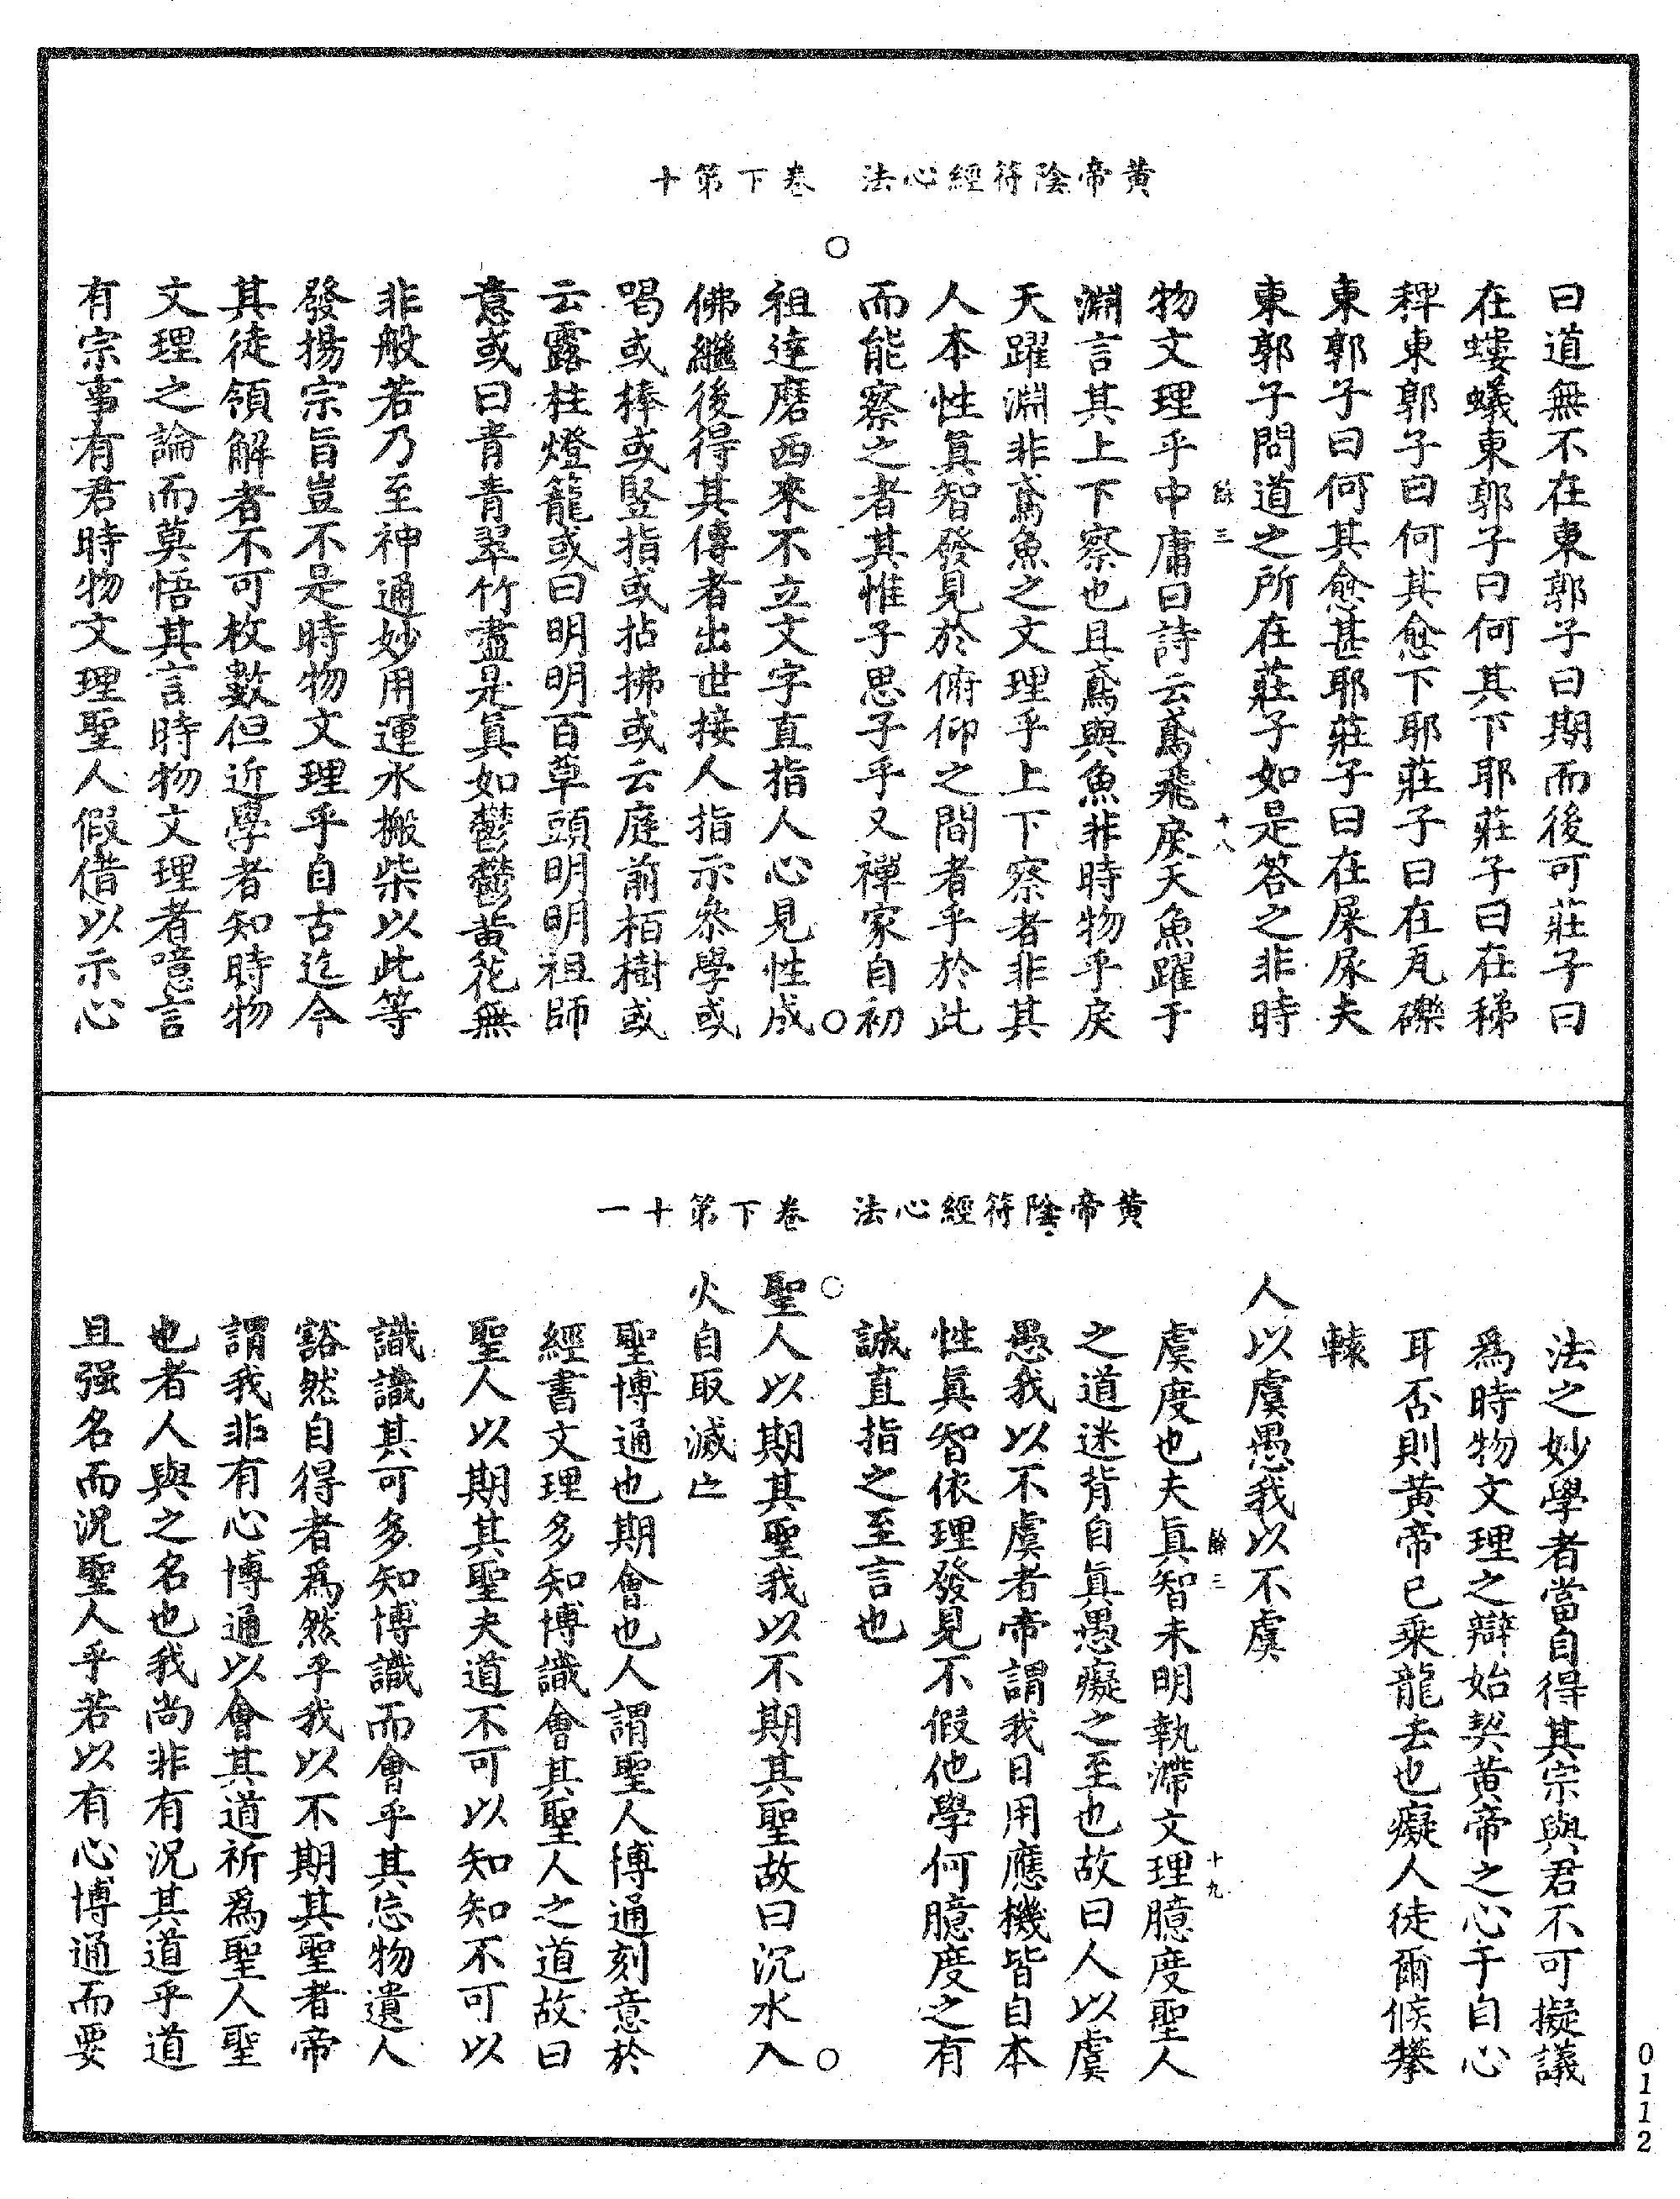 黃帝陰符經心法　卷下第十
曰道無不在東郭子曰期而後可莊子曰
在螻蟻東郭子曰何其下耶莊子曰在稊
稗東郭子曰何其愈下耶莊子曰在瓦礫
東郭子曰何其愈甚耶莊子曰在屎尿夫
東郭子問道之所在莊子如是答之非時
餘三　十八
物文理乎中庸曰詩云鳶飛戾天魚躍于
淵言其上下察也且鳶與魚非時物乎戾
天躍淵非鳶魚之文理乎上下察者非其
人本性眞智發見於俯仰之間者乎於此
而能察之者其惟子思子乎又禪家自初
○　○
祖達磨西來不立文字直指人心見性成
佛繼後得其傳者出世接人指示叅學或
喝或棒或竪指或拈拂或云庭前栢樹或
云露柱燈籠或曰明明百草頭明明祖師
意或曰青青翠竹盡是眞如鬱鬱黃花無
非般若乃至神通妙用運水搬柴以此等
發揚宗旨豈不是時物文理乎自古迄今
其徒領解者不可枚數但近學者知時物
文理之論而莫悟其言時物文理者噫言
有宗事有君時物文理聖人假借以示心
黃帝陰符經心法　卷下第十一
法之妙學者當自得其宗與君不可擬議
爲時物文理之辯始契黃帝之心于自心
耳否則黃帝已乘龍去也癡人徒爾候攀
轅
人以虞愚我以不虞
餘三　十九
虞度也夫眞智未明執滯文理臆度聖人
之道迷背自眞愚癡之至也故曰人以虞
愚我以不虞者帝謂我日用應機皆自本
性眞智依理發見不假他學何臆度之有
誠直指之至言也
○　○
聖人以期其聖我以不期其聖故曰沉水入
火自取滅亡
聖博通也期會也人謂聖人博通刻意於
經書文理多知博識會其聖人之道故曰
聖人以期其聖夫道不可以知知不可以
識識其可多知博識而會乎其忘物遺人
豁然自得者爲然乎我以不期其聖者帝
謂我非有心博通以會其道祈爲聖人聖
也者人與之名也我尚非有況其道乎道
且强名而況聖人乎若以有心博通而要
0112